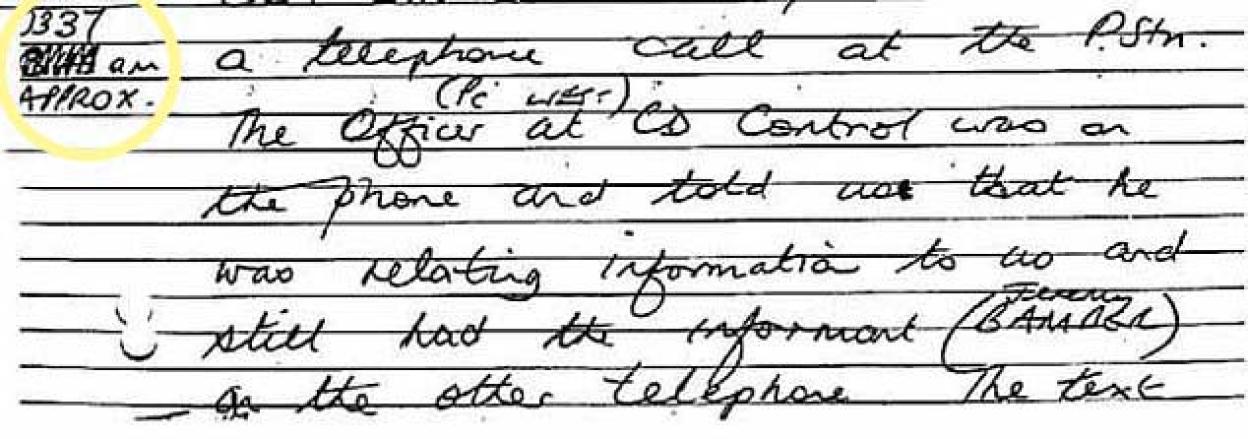 0337
am
APPROX.
a telephone call at the P.Stn.
(Pc West)
The Officer at CD Control was on
the phone and told us that he
was relating information to us and
still had the informant (Jeremy BAMBER)
on the other telephone The text